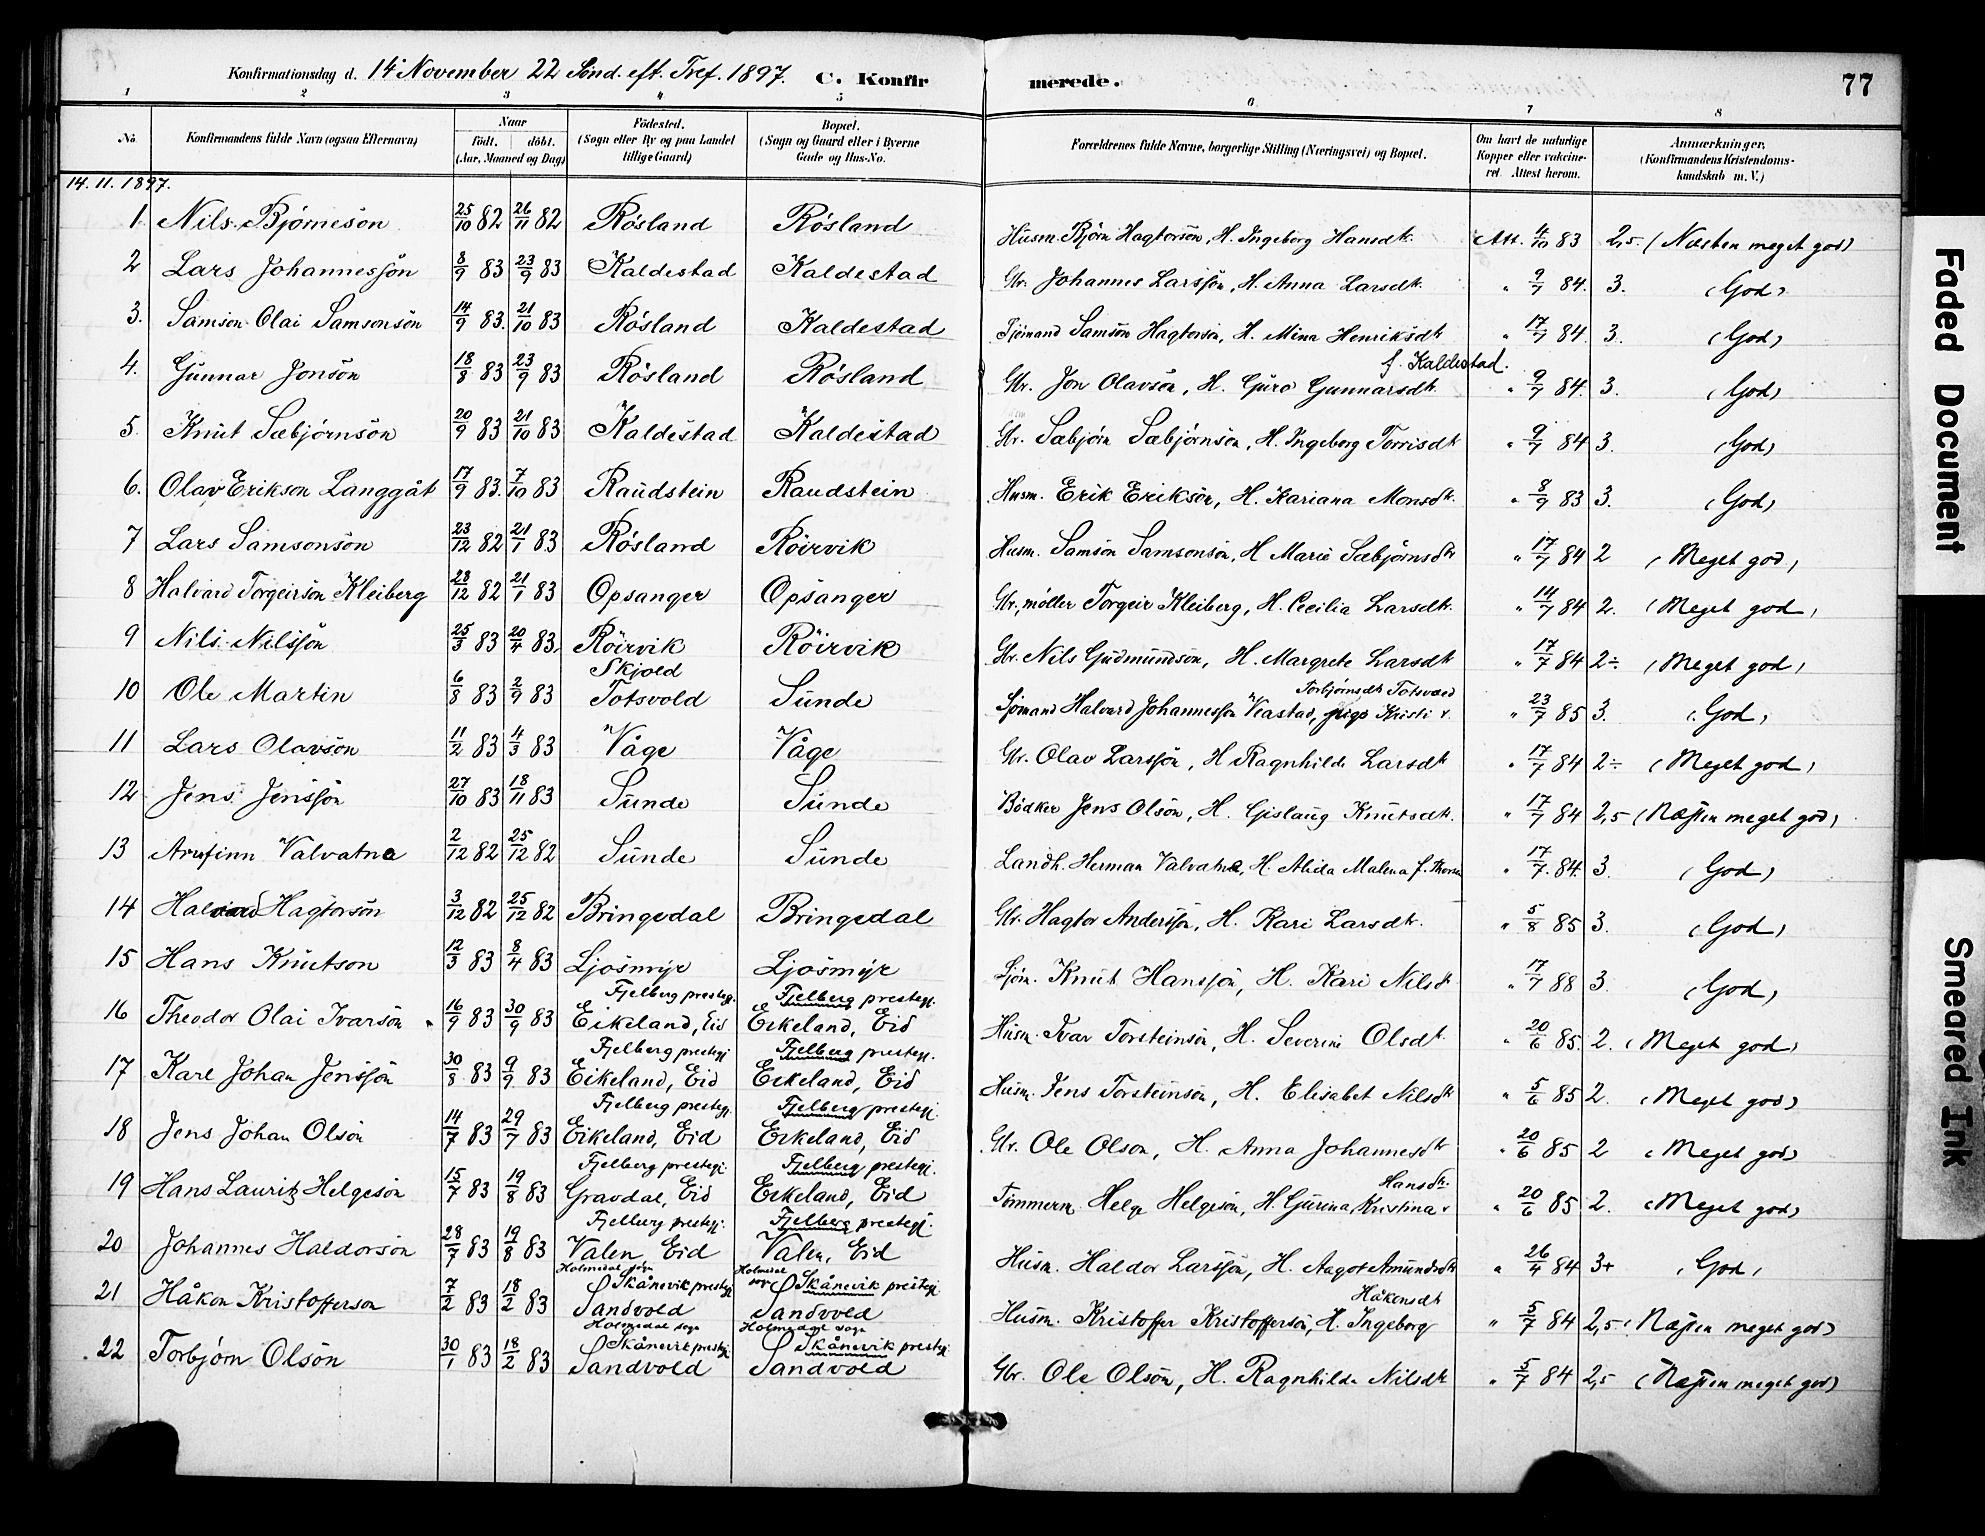 Konfirmationsdag d. 14 November 22 Sönd. eft. Tref. 1897. C. Konfir merede. 77
1 2 3 4 5 6 7 8
No. Konfirmandens fulde Navn (ogsaa Efternavn) Naar födt. döbt. (Aar, Maaned og Dag) Födested. (Sogn eller By og paa Landet tillige Gaard) Bopæl. (Sogn og Gaard eller i Byerne Gade og Hus-No. Forældrenes fulde Navne, borgerlige Stilling (Næringsvei) og Bopæl. Om havt de naturlige Kopper eller vakcineret. Attest herom. Anmærkninger. (Konfirmandens Kristendomskundskab m. V.)
14. 11. 1897.
1. Nils Björnesön 25/10 82 26/11 82 Rösland Rösland Husm. Björn Hagtorsön, H. Ingeborg Hansdt. Att. 4/10 83 2,5. (Næsten meget god)
2 Lars Johannesson 8/9 83 23/9 83 Kaldestad Kaldestad Gbr. Johannes Larsson, H. Anna Larsdt. " 9/7 84. 3. (God)
3. Samson Olai Samsonsön 14/9 83. 21/10 83 Rösland Kaldestad Sjömand Samson Hagtorsön, H. Mina Henriksdt. f. Kaldestad. " 17/7 84. 3. (God)
4. Gunnar Jonsön 18/8 83 23/9 83 Rösland Rösland Gbr. Jon Olavsön, H. Guro Gunnarsdt. " 9/7 84. 3. (God)
5. Knut Sæbjörnsön 20/9 83 21/10 83 Kaldestad Kaldestad Gbr. Sæbjörn Sæbjörnsön, H. Ingeborg Torrisdt " 9/7 84 3. (God)
6. Olav Erikson Langgåt 17/9 83. 7/10 83 Raudstein Raudstein Husm. Erik Eriksön, H. Kariana Monsdt. " 8/9 83 3. (God)
7 Lars Samsonsön 23/12 82 21/1 83 Rösland Röirvik Husm. Samson Samsonsön, H Marie Sæbjörnsdt " 17/7 84 2 (Meget god)
8 Halvard Torgeirsön Kleiberg 28/12 82 21/1 83 Opsanger Opsanger Gbr., möller Torgeir Kleiberg, H. Cecilia Larsdt. " 14/7 84 2. (Meget god)
9 Nils Nilsson 25/3 83 20/4 83. Röirvik Röirvik Gbr. Nils Gudmundsön, H. Margrete Larsdt " 17/7 84 2÷ (Meget god)
10 Ole Martin 6/8 83 2/9 83 Skjold Totsvold Sunde Sjömand Halvard Johannesson Veastad, pige Kristi Torbjörnsdt Totsvold " 23/7 85 3. (God)
11 Lars Olavsön 11/2 83 4/3 83 Våge Våge Gbr. Olav Larsson, H Ragnhilde Larsdt " 17/7 84 2÷ (Meget god)
12 Jens Jensson 27/10 83 18/11 83 Sunde Sunde Bödker Jens Olsön, H. Gislaug Knutsdt. " 17/7 84 2,5 (Næsten meget god)
13 Arnfinn Valvatne 2/12 82 25/12 82 Sunde Sunde Landh. Herman Valvatne, H. Alida Malena f. " 17/7. 84. 3. (God)
14 Halvard Hagtorsön 3/12 82 25/12 82 Bringedal Bringedal Gbr. Hagtor Andersson, H. Kari Larsdt. " 5/8 85 3. (God)
15 Hans Knutson 12/3 83 8/4 83 Ljosmyr Ljosmyr Sjöm. Knut Hansson, H. Kari Nilsdt " 17/7 88 3. (God)
16 Theodor Olai Ivarsön 16/9 83 30/9 83 Fjelberg prestegj. Eikeland, Eid Fjelberg prestegj. Eikeland, Eid Husm. Ivar Torsteinsön, H. Severine Olsdt. " 20/6 85. 2. (Meget god)
17 Karl Johan Jensson 30/8 83 9/9 83 Fjelberg prestegj Eikeland, Eid Fjelberg prestegj. Eikeland, Eid Husm. Jens Torsteinsön, H. Elisabet Nilsdt " 5/6 85 2. (Meget god)
18 Jens Johan Olsön 14/7 83 29/7 83 Fjelberg prestegj. Eikeland, Eid Fjelberg prestegj. Eikeland, Eid Gbr. Ole Olson, H. Anna Johannesdt " 20/6 85 2 (Meget god)
19 Hans Lauritz Helgesön 15/7 83 19/8 83 Fjelberg prestegj. Gravdal, Eid Fjelberg prestegj. Eikeland, Eid Tömmerm. Helge Helgesön, H. Gurina Kristina Hansdt. " 20/6 85 2. (Meget god)
20 Johannes Haldorsön 28/7 83 19/8 83 Fjelberg prestegj. Valen, Eid Fjelberg prestegj. Valen, Eid Husm. Haldor Larsson, H. Aagot Amundsdt " 26/4 84 3+ (God)
21 Håkon Kristofferson 7/2 83 18/2 83 Holmedal sogn Skånevik prestegj Sandvold Holmedal sogn Skånevik prestegj Sandvold Husm. Kristoffer Kristofferson, H. Ingeborg Håkonsdt " 5/7 84 2,5. (Næsten meget god)
22 Torbjörn Olsön 30/1 83 18/2 83 Holmedal sogn Skånevik prestegj Sandvold Holmedal sogn Skånevik prestegj Sandvold Gbr. Ole Olson, H. Ragnhilde Nilsdt " 5/7 84 2,5 (Næsten meget god)
Faded Document
Smeared Ink